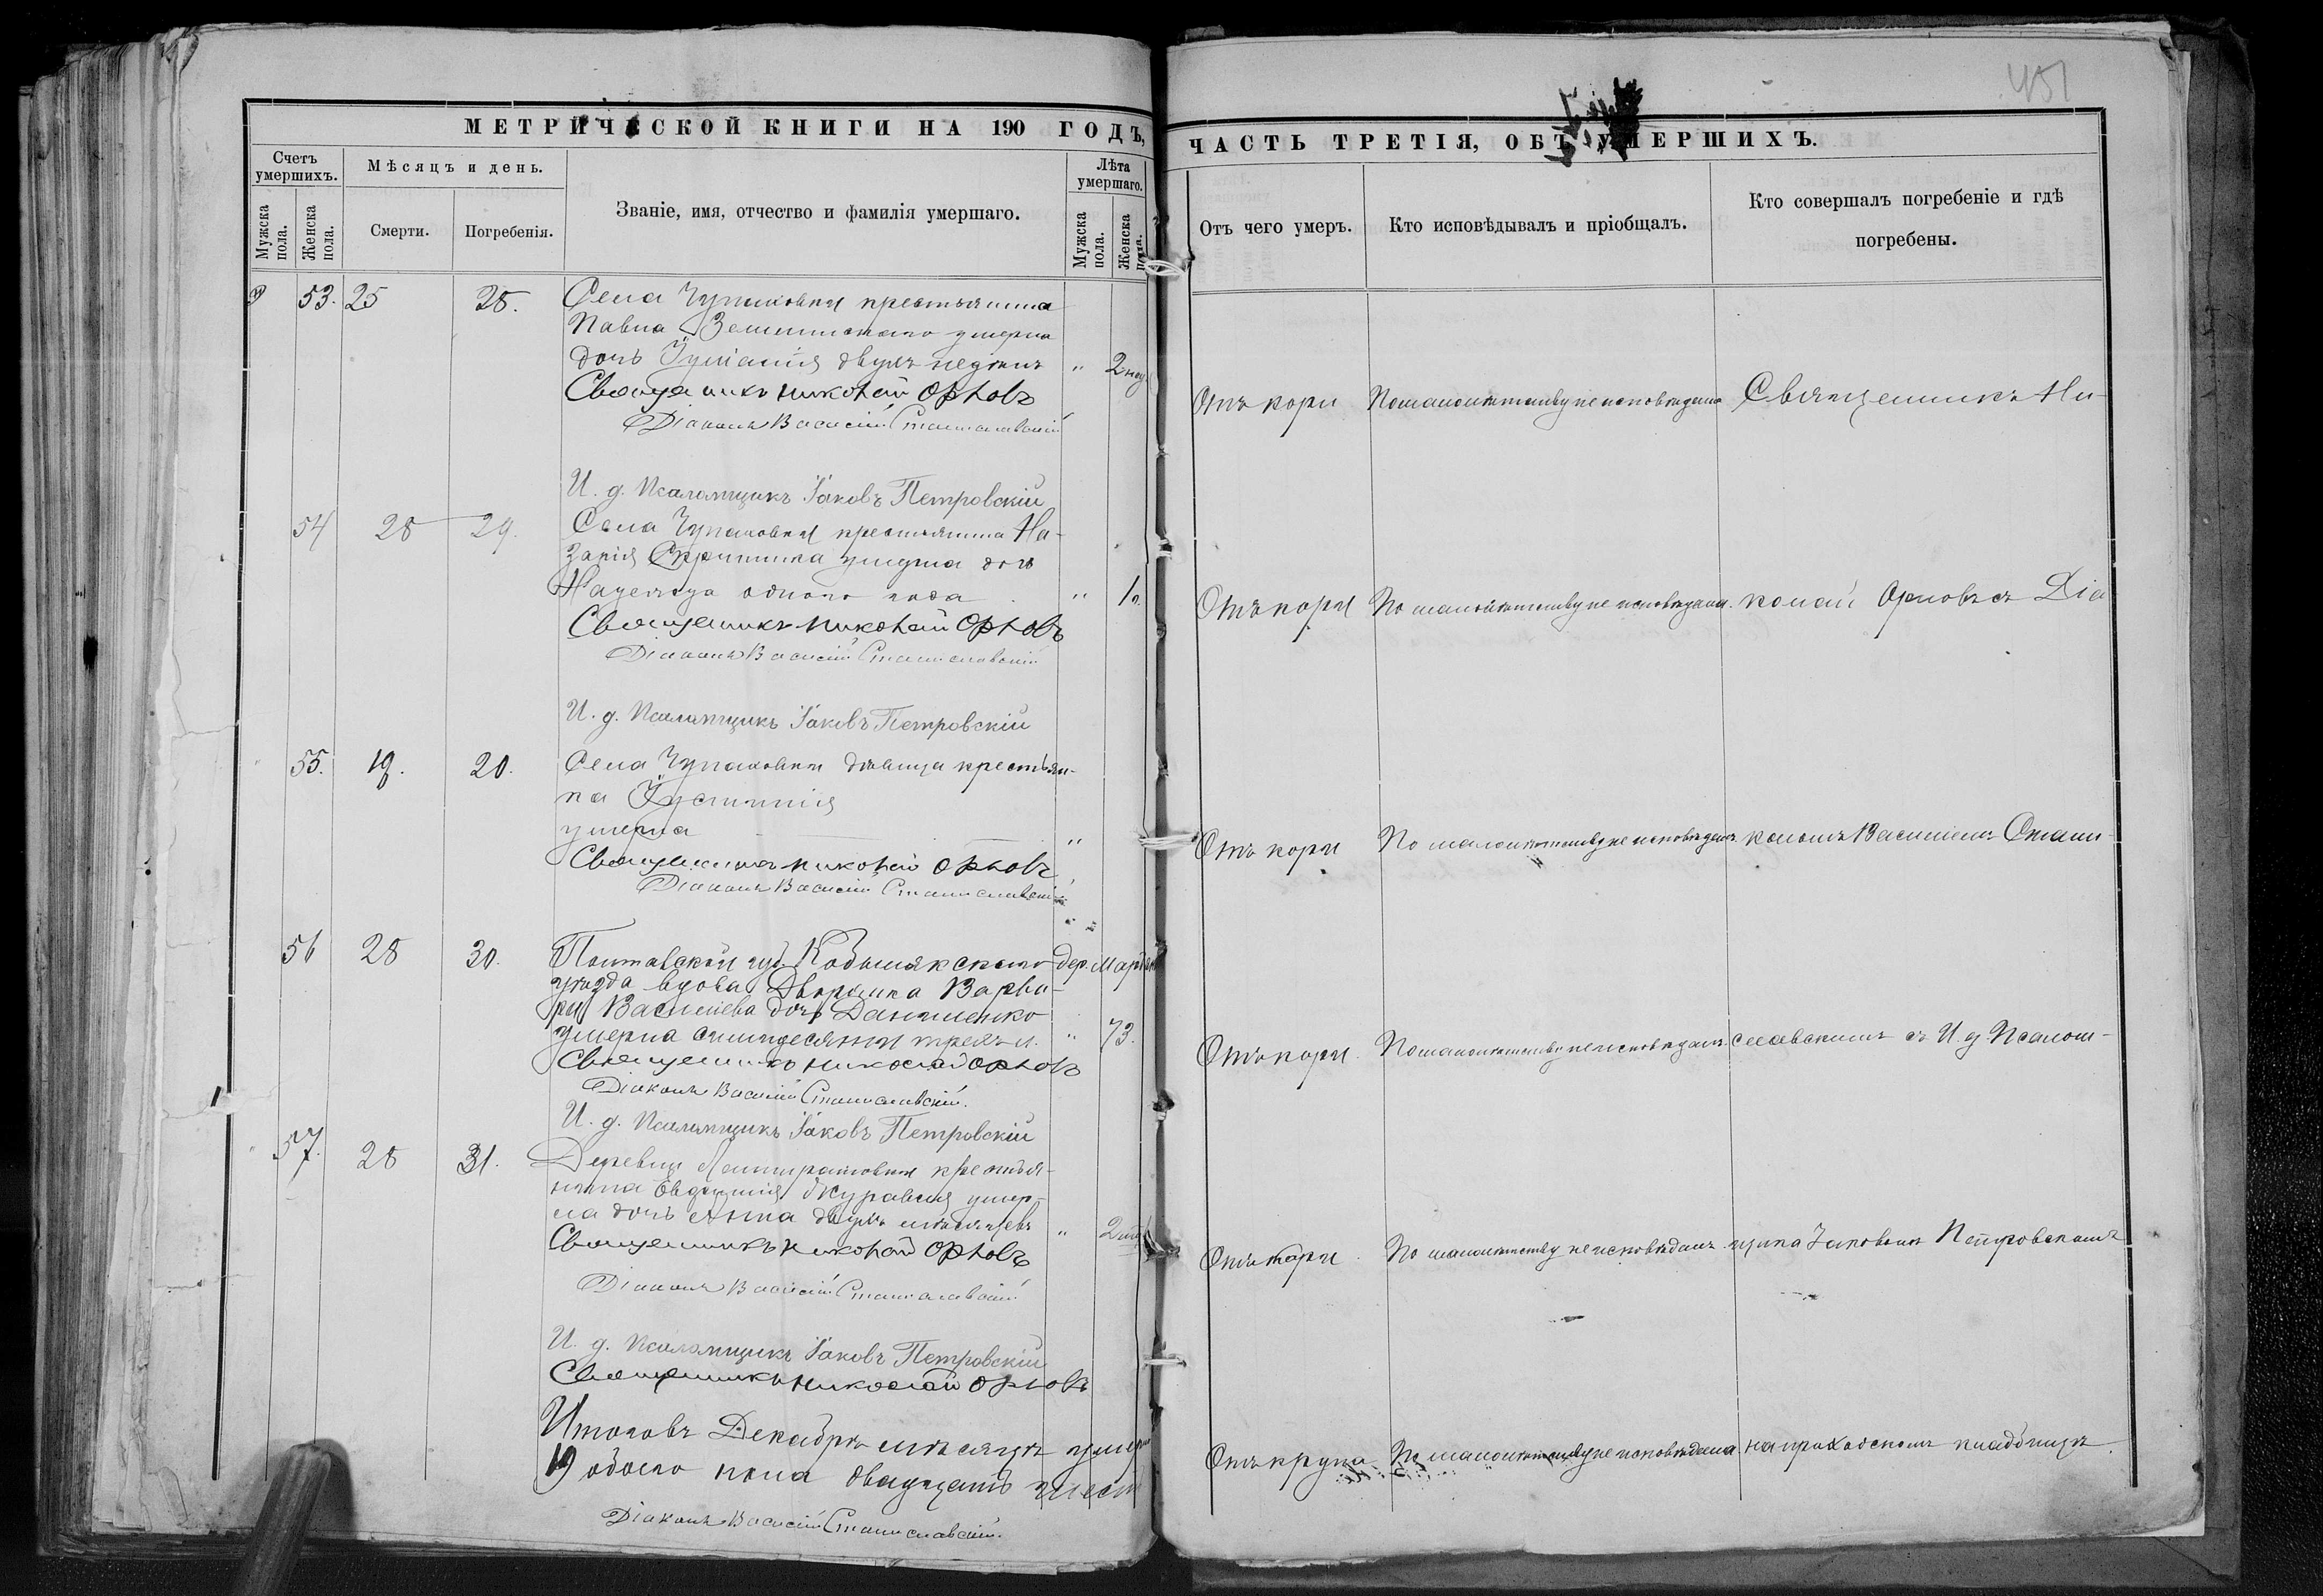 451
МЕТРИЧЕСКОЙ КНИГИ НА 190 ГОДЪ,
Счетъ умершихъ.
Мужска пола.
Женска пола.
Мѣсяцъ и день.
Смерти.
Погребенія.
Званіе, имя, отчество и фамилія умершаго.
Лѣта умершаго.
Мужска пола.
Женска пола.
53. 25 28.
Села Чупаховки крестьянина
Павла умерла
дочь Іуліанія двухъ недѣль " 2 нед
Священникъ Николай Орловъ
Діаконъ Василій Станиславскій
И. д. Псаломщикъ Іаковъ Петровскій
54 28 29.
Села Чупаховки крестьянина На-
зарія умерла дочь
Надежда одного года " 1 г.
Священникъ Николай Орловъ
Діаконъ Василій Станиславскій
И. д. Псаломщикъ Іаковъ Петровскій
55. 19. 20.
Села Чупаховки дѣвица крестьян-
ка Іустинія
умерла "
Священникъ Николай Орловъ
Діаконъ Василій Станиславскій
56 28 30.
Полтавской губ. Кобылякскаго дер.
уѣзда вдова Дворянка Варва-
ра Васильева дочь Даниленко
умерла семидесяти трехъ л. " 73.
Священникъ Николай Орловъ
Діаконъ Василій Станиславскій.
И. д. Псаломщикъ Іаковъ Петровскій
57. 28 31.
Деревни крестья-
нина Евфимія Журавля умер-
ла дочь Анна двухъ мѣсяцевъ " 2 м
Священникъ Николай Орловъ
Діаконъ Василій Станиславскій
И. д. Псаломщикъ Іаковъ Петровскій
Священникъ Николай Орловъ
Итого въ Декабрѣ мѣсяцѣ умерло
обоего пола двадцать шесть
Діаконъ Василій Станиславскій.
ЧАСТЬ ТРЕТІЯ, ОБЪ УМЕРШИХЪ.
Отъ чего умеръ.
Кто исповѣдывалъ и пріобщалъ.
Кто совершалъ погребеніе и гдѣ
погребены.
Отъ кори По малолѣтству не исповѣдана Священникъ Ни-
Отъ кори По малолѣтству не исповѣдана. колай Орловъ съ Діа
Отъ кори По малолѣтству не исповѣдан. кономъ Василіемъ Стани-
Отъ кори. По малолѣтству не исповѣдан. славскимъ и И. д. Псалом-
Отъ кори. По малолѣтству не исповѣдан. щика Іаковомъ Петровскимъ
Отъ крупа По малолѣтству не исповѣдана на приходскомъ кладбищѣ.